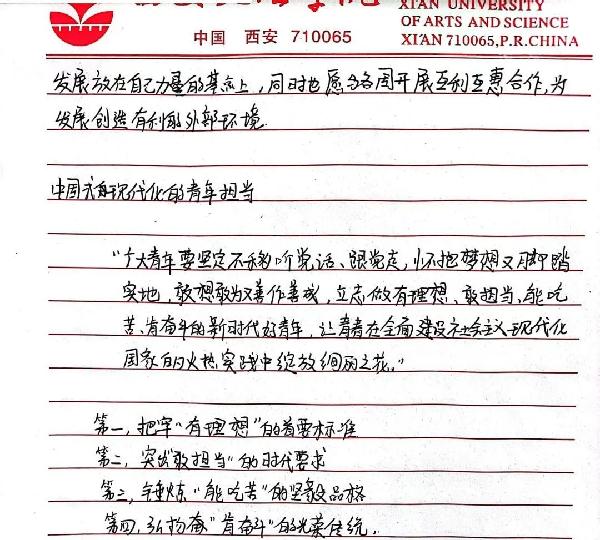 XI'AN UNIVERSITY
OF ARTS AND SCIENCE
中国 西安 710065
XI'AN 710065,P.R.CHINA
发展放在自己力量的基点上,同时也愿与各国开展互利互惠合作,为
发展创造有利的外部环境.
中国式现代化的青年担当
“广大青年要坚定不移听党话、跟党走,怀抱梦想又脚踏
实地,敢想敢为又善作善成,立志做有理想、敢担当、能吃
苦、肯奋斗的新时代好青年,让青春在全面建设社会主义现代化
国家的火热实践中绽放绚丽之花。”
第一,把牢“有理想”的首要标准
第二,突出“敢担当”的时代要求
第三,锤炼“能吃苦”的坚毅品格
第四,弘扬“肯奋斗”的光荣传统.